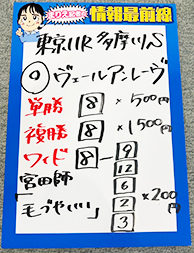 情報最前線
東京11R 多摩川S
◎ヴェールアンレーヴ
単勝 8 × 500円
複勝 8 × 1500円
ワイド 8 - 9
12
6
2
3
×200円
宮田師
「毛づや!!!!」